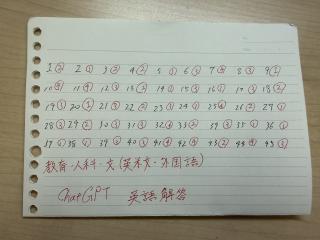 1② 2① 3② 4② 5① 6③ 7④ 8③ 9①
10④ 11④ 12③ 13② 14② 15③ 16① 17③ 18②
19③ 20① 21③ 22② 23③ 24① 25④ 26② 27①
28③ 29② 30① 31③ 32④ 33② 34③ 35① 36①
37④ 38① 39④ 40③ 41④ 42④ 43② 44④ 45③
教育・人科・文(英米文・外国語)
ChatGPT 英語解答